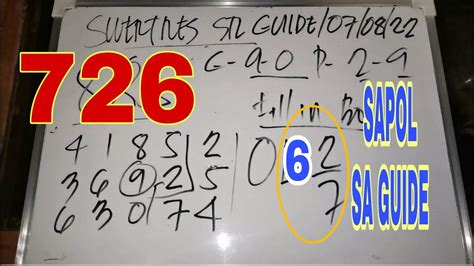 SWERTRES STL GUIDE/07/08/22
G-9-0 P-2-9
726
fill in
SAPOL
4 1 8 5 2
0 6 2
3 6 9 2 5
7
SA GUIDE
6 3 0 7 4